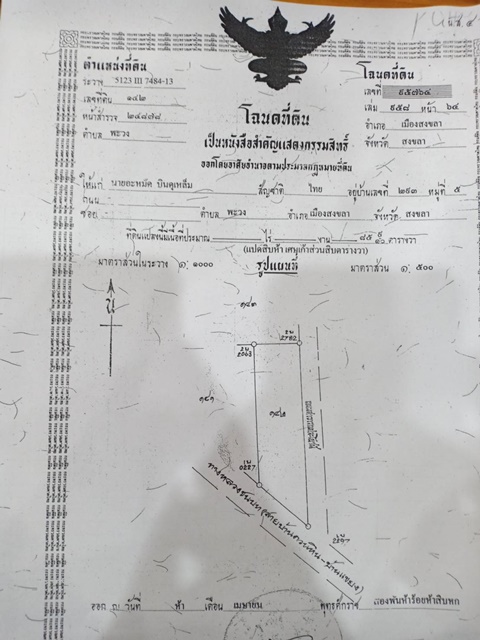 น.ส. ๔
ตำแหน่งที่ดิน
ระวาง 5123 III 7484-13
เลขที่ดิน ๑๔๒
หน้าสำรวจ ๒๔๘๗๘
ตำบล พะวง
โฉนดที่ดิน
เลขที่ ๙๕๗๖๔
เล่ม ๙๕๘ หน้า ๖๔
อำเภอ เมืองสงขลา
จังหวัด สงขลา
โฉนดที่ดิน
เป็นหนังสือสำคัญแสดงกรรมสิทธิ์
ออกโดยอาศัยอำนาจตามประมวลกฎหมายที่ดิน
ให้แก่ นายอะหมัด บินดุเหล็ม สัญชาติ ไทย อยู่บ้านเลขที่ ๒๙๓ หมู่ที่ ๕
ถนน
ซอย ตำบล พะวง อำเภอ เมืองสงขลา จังหวัด สงขลา
ที่ดินแปลงนี้มีเนื้อที่ประมาณ ไร่ งาน ๘๕ ๙/๑๐ ตารางวา
(แปดสิบห้า เศษเก้าส่วนสิบตารางวา)
มาตราส่วนในระวาง ๑: ๑๐๐๐ รูปแผนที่ มาตราส่วน ๑: ๕๐๐
น
๑๔๓
2ข 2063
2ข 2782
๑๔๑
๑๔๒
0287
ทางหลวงชนบท(สายบ้านควนหิน-บ้าน
ออก ณ วันที่ ห้า เดือน เมษายน พุทธศักราช สองพันห้าร้อยห้าสิบหก